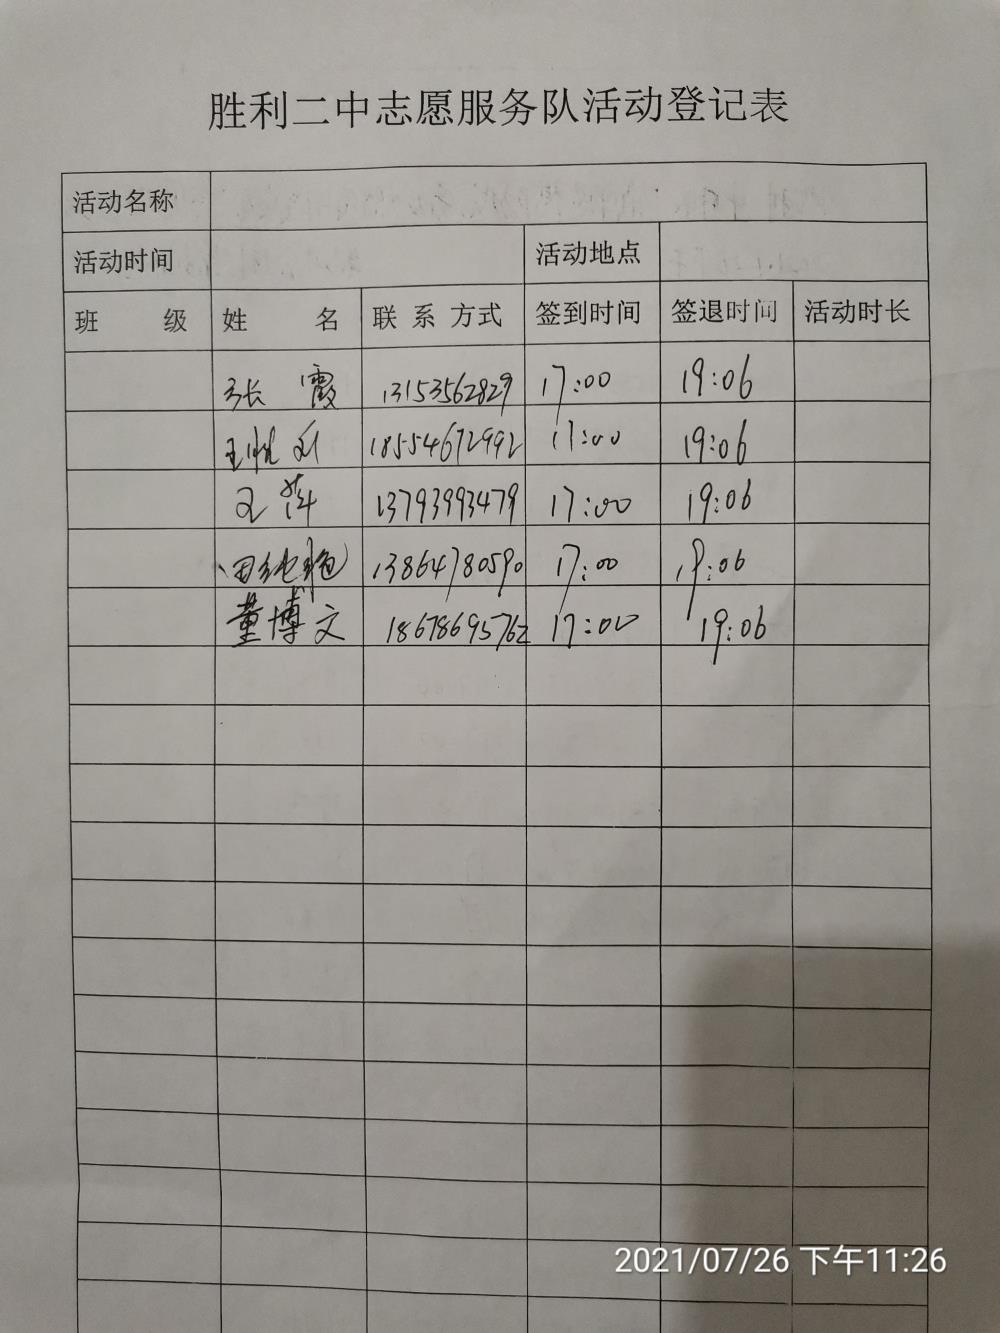 胜利二中志愿服务队活动登记表
活动名称
活动时间 活动地点
班 级 姓 名 联系方式 签到时间 签退时间 活动时长
张霞 13153562829 17:00 19:06
王 18554672992 17:00 19:06
王萍 13793993479 17:00 19:06
田纯艳 13864780590 17:00 19:06
董博文 18678695762 17:00 19:06
2021/07/26 下午11:26